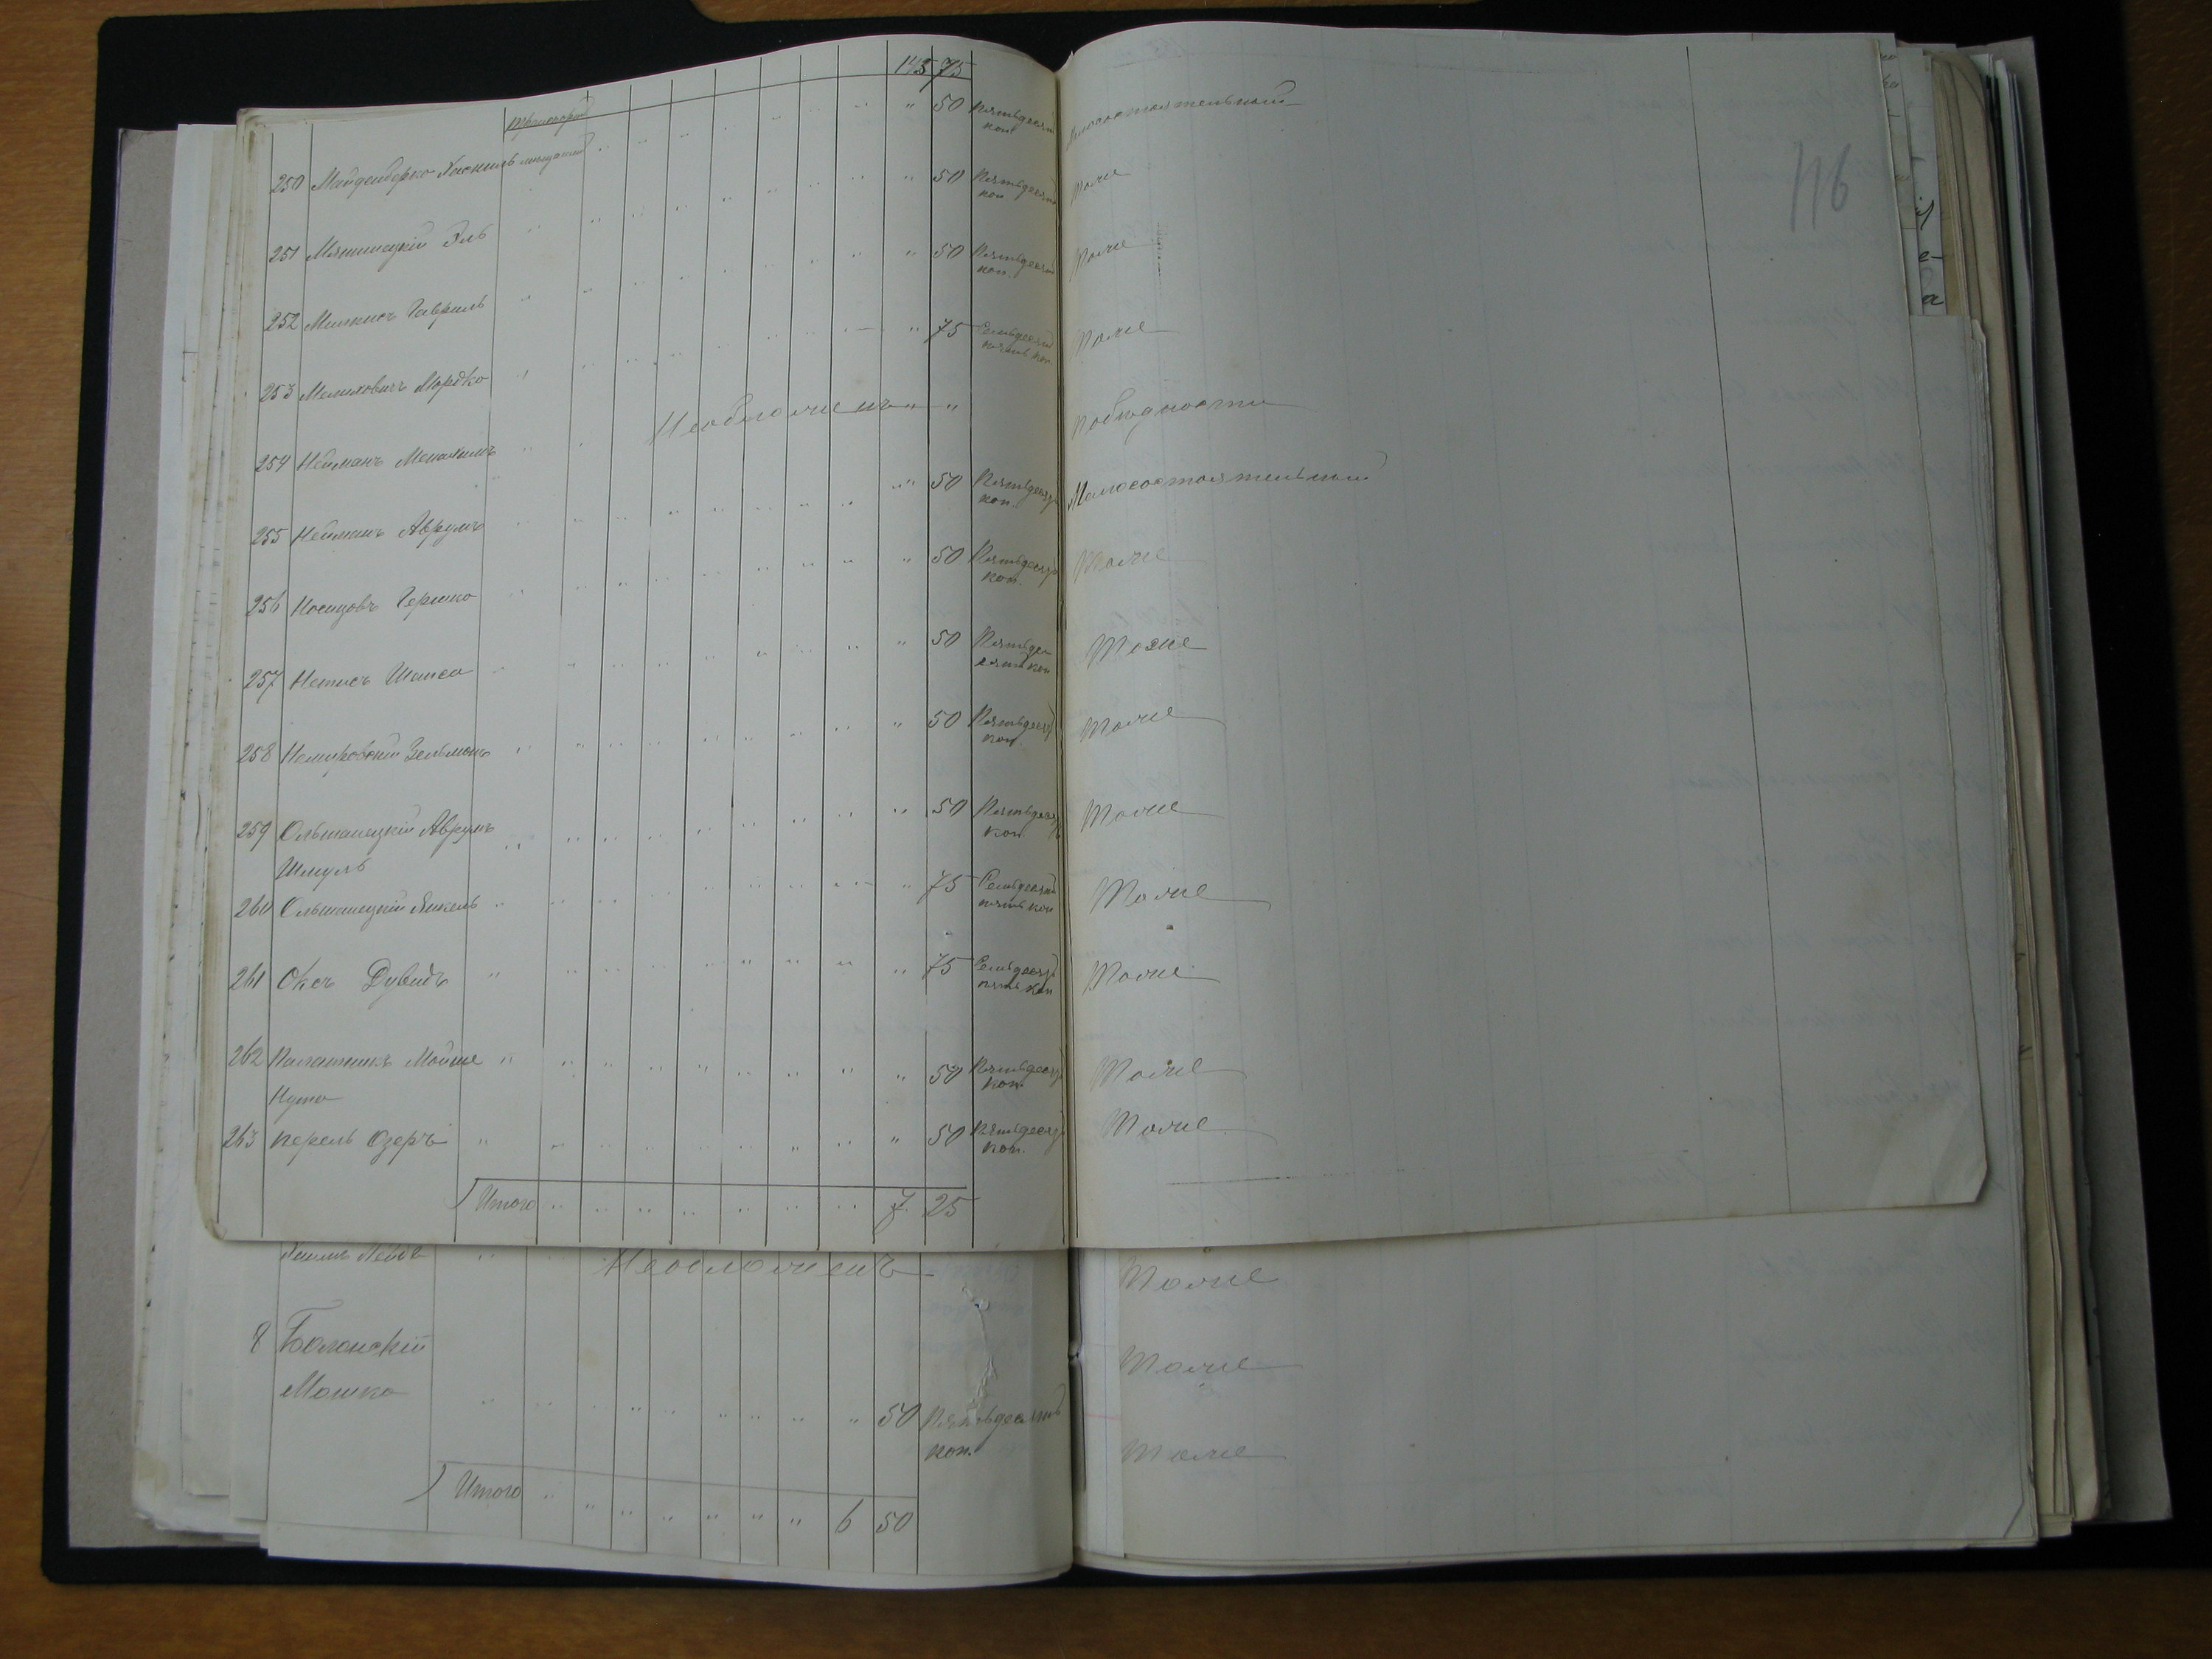 143 75
250 Майденберко Хаскиль мещанинъ " 50 Пятьдесятъ Малосостоятельный
коп
251 Мяшицкій Эль " 50 Пятьдесятъ Тоже
коп
252 Милкисъ Гавриль " 50 Пятьдесятъ Тоже
коп.
253 Мошковичъ Мордко " 75 Семьдесятъ Тоже
пять коп.
254 Нейманъ Менахимъ Необложенъ " " По бѣдности
255 Нейманъ Аврумъ " 50 Пятьдесятъ Малосостоятельный
коп.
256 Носиковъ Гершко " 50 Пятьдесятъ Тоже
коп.
257 Шапса " 50 Пятьде Тоже
сятъ коп
258 Немировскій Зельманъ " 50 Пятьдесятъ Тоже
коп.
259 Ольшанецкій Аврумъ " 50 Пятьдесятъ Тоже
Шмуль коп
260 Ольшанецкій Янкель " 75 Семьдесятъ Тоже
пять коп
261 Оксъ Дувидъ " 75 Семьдесятъ Тоже
пять коп
262 Палатникъ Мойше " 50 Пятьдесятъ Тоже
Нута коп.
263 Перель Озеръ " 50 Пятьдесятъ Тоже
коп.
Итого 7 25
116
Лейба Необложенъ Тоже
8 Балонскій Тоже
Мошко " 50 Пятьдесятъ Тоже
коп.
Итого 6 50